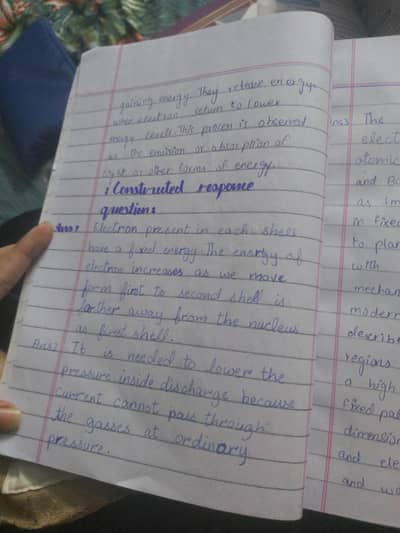 gaining energy. They release energy.
when electron return to lower
energy levels. This process is observed
as the emission or absorption of
light or other forms of energy.
Constructed response
questions
Ans1 Electron present in each shell
have a fixed energy. The energy of
electron increases as we move
form first to second shell is
farther away from the nucleus
as first shell.
Ans2 It is needed to lower the
pressure inside discharge because
current cannot pass through
the gasses at ordinory
pressure.
Ans3 The
elect
atomic
and Bo
as
in fixed
to plan
with
mechan
modern
describe
regions
a high
fixed pat
dimension
and ele
and wa